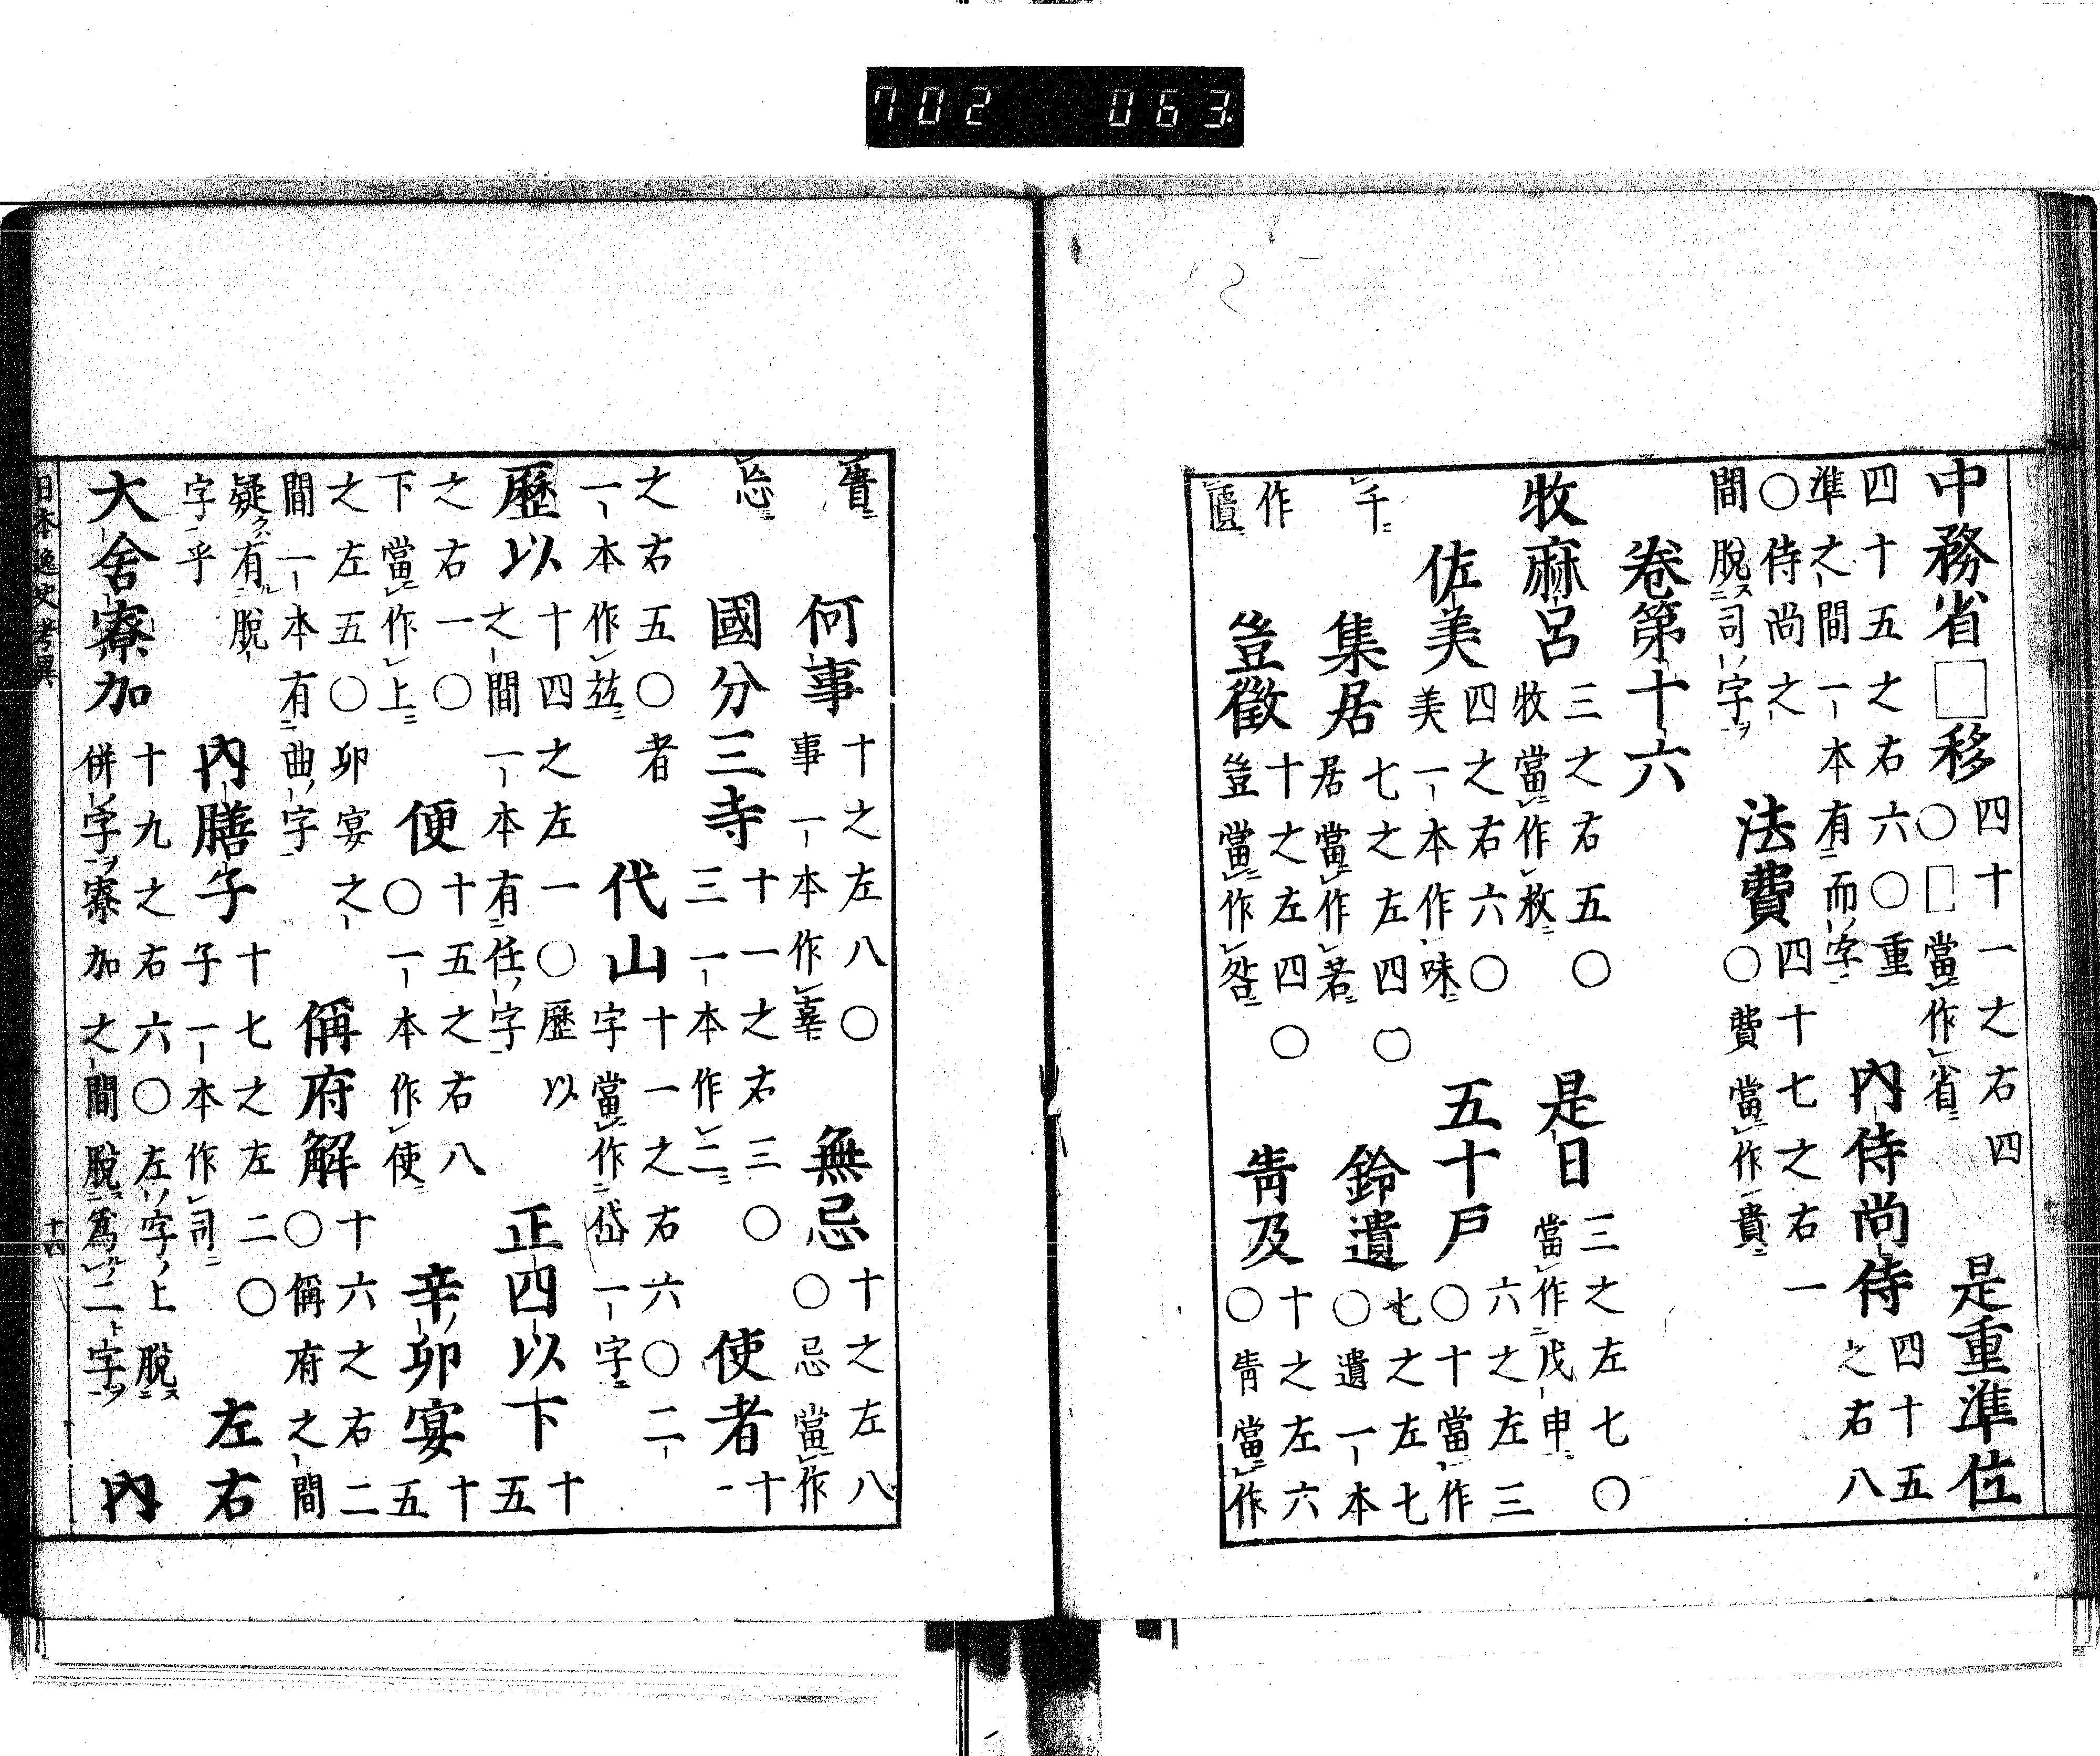 702 063
中務省□移 四十一之右四〇□當作省 是重準位
四十五之右六〇重準之間一本有而字 內侍尚侍 四十五之右八
〇侍尚之間脫司ノ字ヲ 法費 四十七之右一〇費當作貴
卷第十六
牧麻呂 三之右五〇牧當作枚 是日 三之左七〇當作戊申
佐美 四之右六〇美一本作味 五十戸 六之左三〇十當作千
集居 七之左四〇居當作若 鈴遺 七之左七〇遺一本作
豈徵 十之左四〇豈當作咎 靑及 十之左六〇靑當作
責 何事 十之左八〇事一本作辜 無忌 十之左八〇忌當作
忩 國分三寺 十一之右三〇三一本作二 使者 十一
之右五〇者一本作玆 代山 十一之右六〇二字當作岱一字
歷以 十四之左一〇歷以之間一本有任ノ字 正四以下 十五
之右一〇下當作上 便 十五之右八〇一本作使 辛卯宴 十五
之左五〇卯宴之間一本有曲ノ字 偁府解 十六之右二〇偁府之間
疑クハ有ル脫字乎 內膳子 十七之左二〇子一本作司 左右
大舍寮加 十九之右六〇左ノ字ノ上脫ス併ノ字ヲ寮加之間脫ス爲ノ二字ヲ 內
日本逸史考異 十四